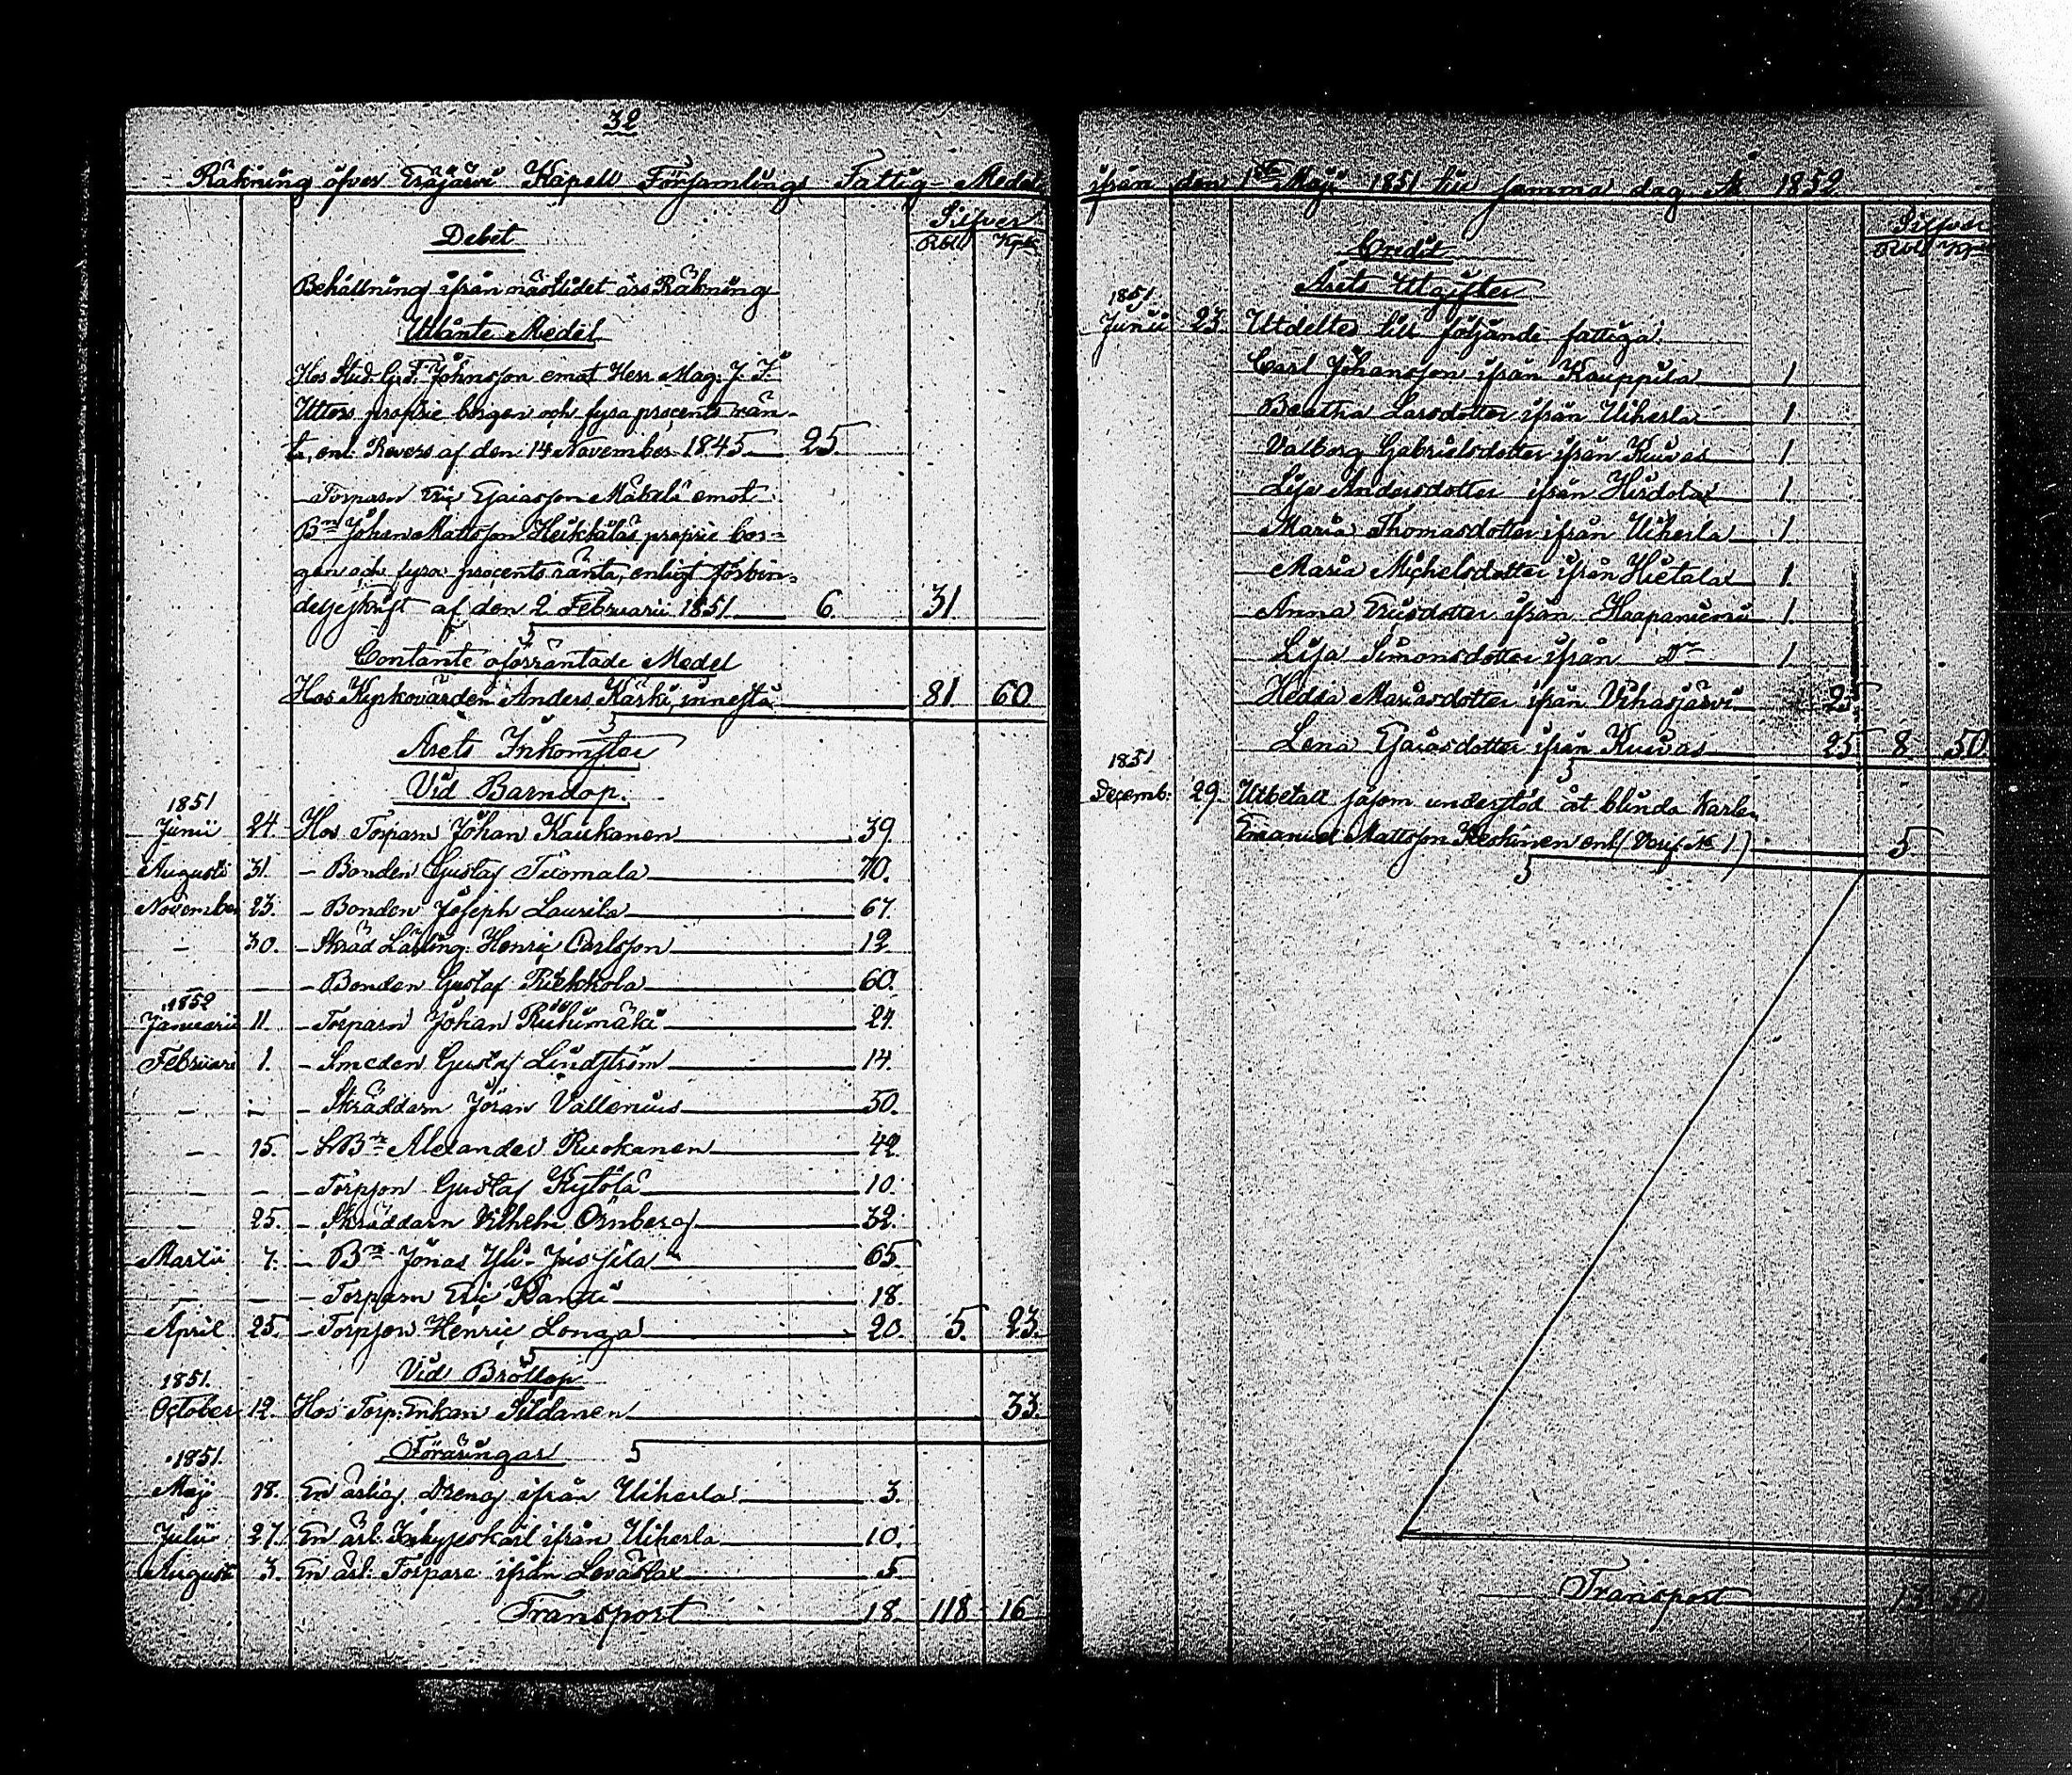 32
Räkning öfver Eräjärvi Kapell Församlings Fattig Medel
Silfver
Debet Rbl Kpk
Behållning ifrån nästlidet års Räkning
Utlånte Medel
Hos Stud. G. F. Johnsson emot Herr Mag. J. F.
Utters proprie borgen och fyra procents rän-
ta, enl. Revers af den 14 November 1845 25
Torparn Eric Esaiasson Mäkelä emot
Bn Johan Mattsson Heikkiläs proprie bor-
gen och fyra procents ränta, enligt förbin-
delseskrift af den 2 Februarii 1851 6. 31
Contante oförräntade Medel
Hos Kyrkovärden Anders Kärki, innestå 81 60
Årets Inkomster
Vid Barndop.
1851
Junii 24. Hos Torparn Johan Kaukanen 39.
Augusti 31. - Bonden Gustaf Tuomala 70.
November 23. - Bonden Joseph Laurila 67.
- 30. - Skräd Lärling. Henric Carlsson 12
- - - Bonden Gustaf Riekkola 60.
1852
Januarii 11. - Torparn Johan Riihimäki 24.
Februari 1. - Smeden Gustaf Lindström 14.
- - - Skräddarn Jöran Vallenius 50.
- 15. - LBn Alexander Ruokanen 42
- - - Torpson Gustaf Kytölä 10.
- 25. - Skräddarn Vilhelm Örnberg 32.
Martii 7. - Bn Jonas Yli-Jussila 65
- - - Torparn Eric Rantti 18.
April 25. - Torpson Henric Longa 20. 5. 23.
Vid Bröllop
1851.
October 12. Hos Torp: Enkan Sildanen 33.
Föräringar
1851.
Maji 18. En ärlig Dreng ifrån Uiherla 3.
Julii 27. En ärl. Inhyseskarl ifrån Uiherla 10.
August 3. En ärl. Torpare ifrån Leväslax 5
Transport 18. 118 16
ifrån den 1sta Maji 1851 till samma dag År 1852
Silfver
Credit Rbl Kpk
Årets Utgifter
1851
Junii 23. Utdeltes till följande fattiga:
Carl Johansson ifrån Kauppila 1
Beatha Larsdotter ifrån Uiherla 1
Valborg Gabrielsdotter ifrån Kuivas 1
Lisa Andersdotter ifrån Hirdola 1
Maria Thomasdotter ifrån Uiherla 1
Maria Michelsdotter ifrån Hietala 1.
Anna Ericsdotter ifrån Haapaniemi 1.
Lisa Simonsdotter ifrån Do 1
Hedda Mariasdotter ifrån Vihasjärvi 25
Lena Esaiasdotter ifrån Kuivas 25 8. 50.
1851
Decemb. 29. Utbetalt såsom understöd åt blinda Karlen
Emanuel Mattsson Keskinen enl (Verif. No 1.) 5
Transport 13 50